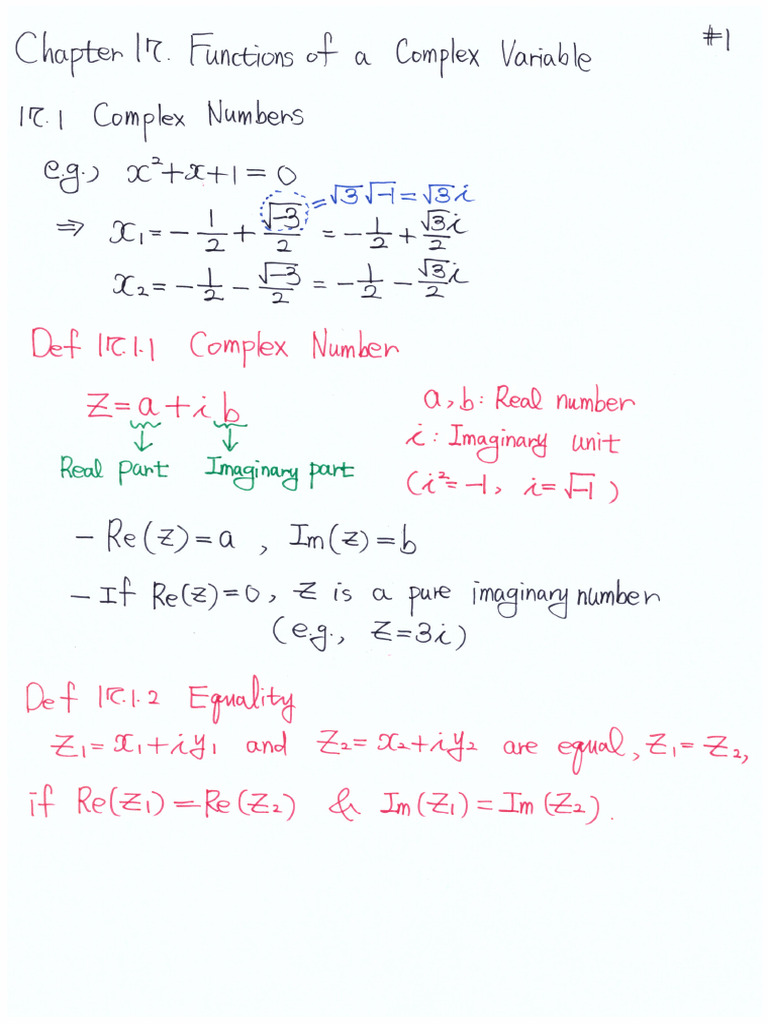 Chapter 17. Functions of a Complex Variable #1
17.1 Complex Numbers
e.g.) x²+x+1=0
=√3√-1=√3i
⇒ x₁=-1/2+√-3/2=-1/2+√3i/2
x₂=-1/2-√-3/2=-1/2-√3i/2
Def 17.1.1 Complex Number
Z=a+ib
a,b: Real number
i: Imaginary unit
(i²=-1, i=√-1)
Real part Imaginary part
- Re(z)=a, Im(z)=b
- If Re(z)=0, Z is a pure imaginary number
(e.g., Z=3i)
Def 17.1.2 Equality
Z₁=x₁+iy₁ and Z₂=x₂+iy₂ are equal, Z₁=Z₂,
if Re(Z₁)=Re(Z₂) & Im(Z₁)=Im(Z₂).